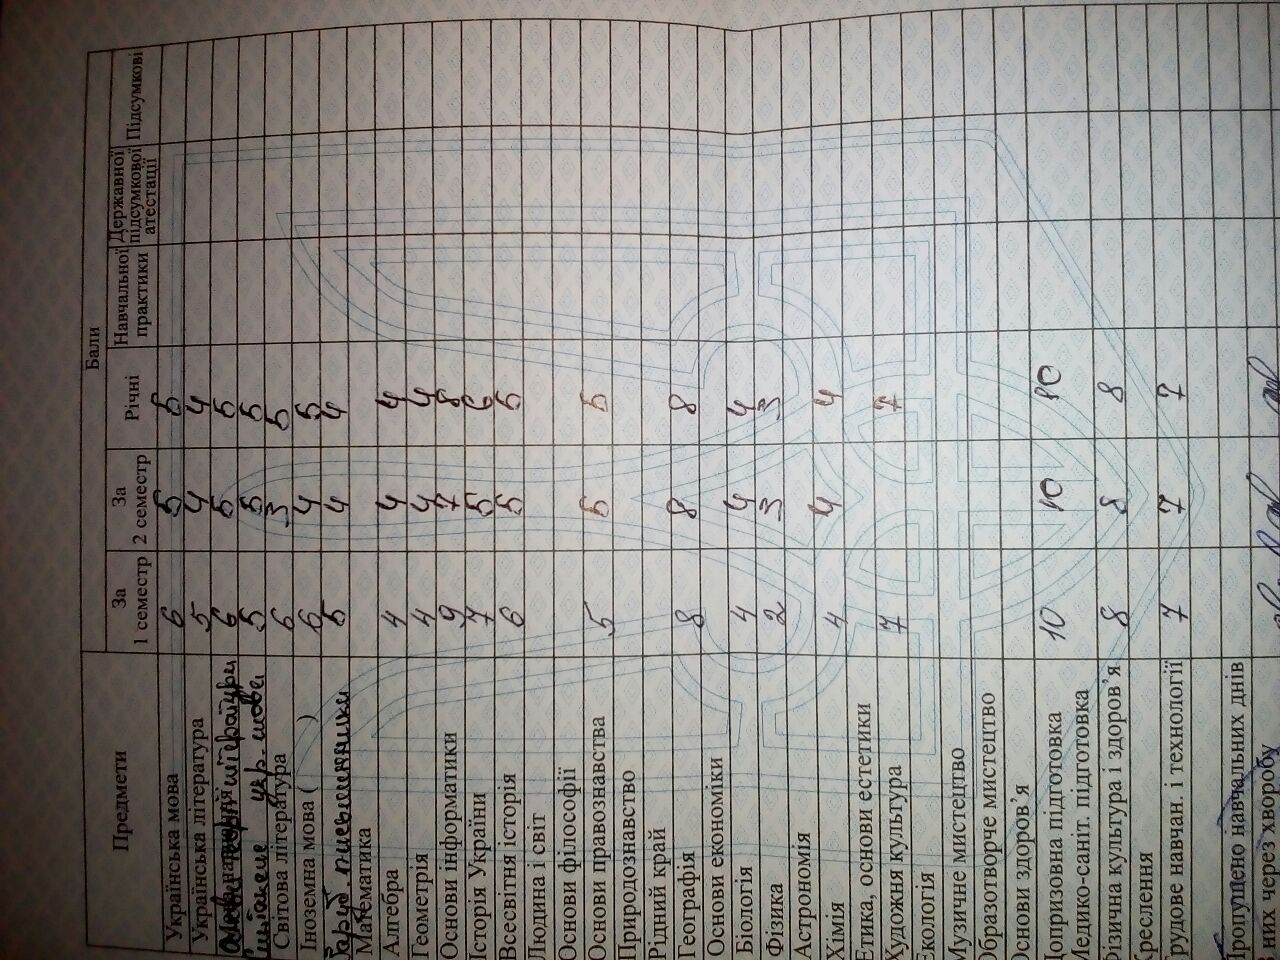 Предмети Бали
За 1 семестр За 2 семестр Річні Навчальної практики Державної підсумкової атестації Підсумкові
Українська мова 6 5 5
Українська література 5 4 4
літератури 6 5 5
укр. мова 5 5 5
Світова література 6 3 5
Іноземна мова ( ) 6 4 5
Заруб. письменники 5 4 4
Математика
Алгебра 4 4 4
Геометрія 4 4 4
Основи інформатики 9 7 8
Історія України 7 5 6
Всесвітня історія 6 5 5
Людина і світ
Основи філософії
Основи правознавства 5 5 5
Природознавство
Рідний край
Географія 8 8 8
Основи економіки
Біологія 4 4 4
Фізика 2 3 3
Астрономія
Хімія 4 4 4
Етика, основи естетики
Художня культура 7 7
Екологія
Музичне мистецтво
Образотворче мистецтво
Основи здоров'я
Допризовна підготовка 10 10 10
Медико-саніт. підготовка
Фізична культура і здоров'я 8 8 8
Креслення
Трудове навчан. і технології 7 7 7
Пропущено навчальних днів
з них через хворобу